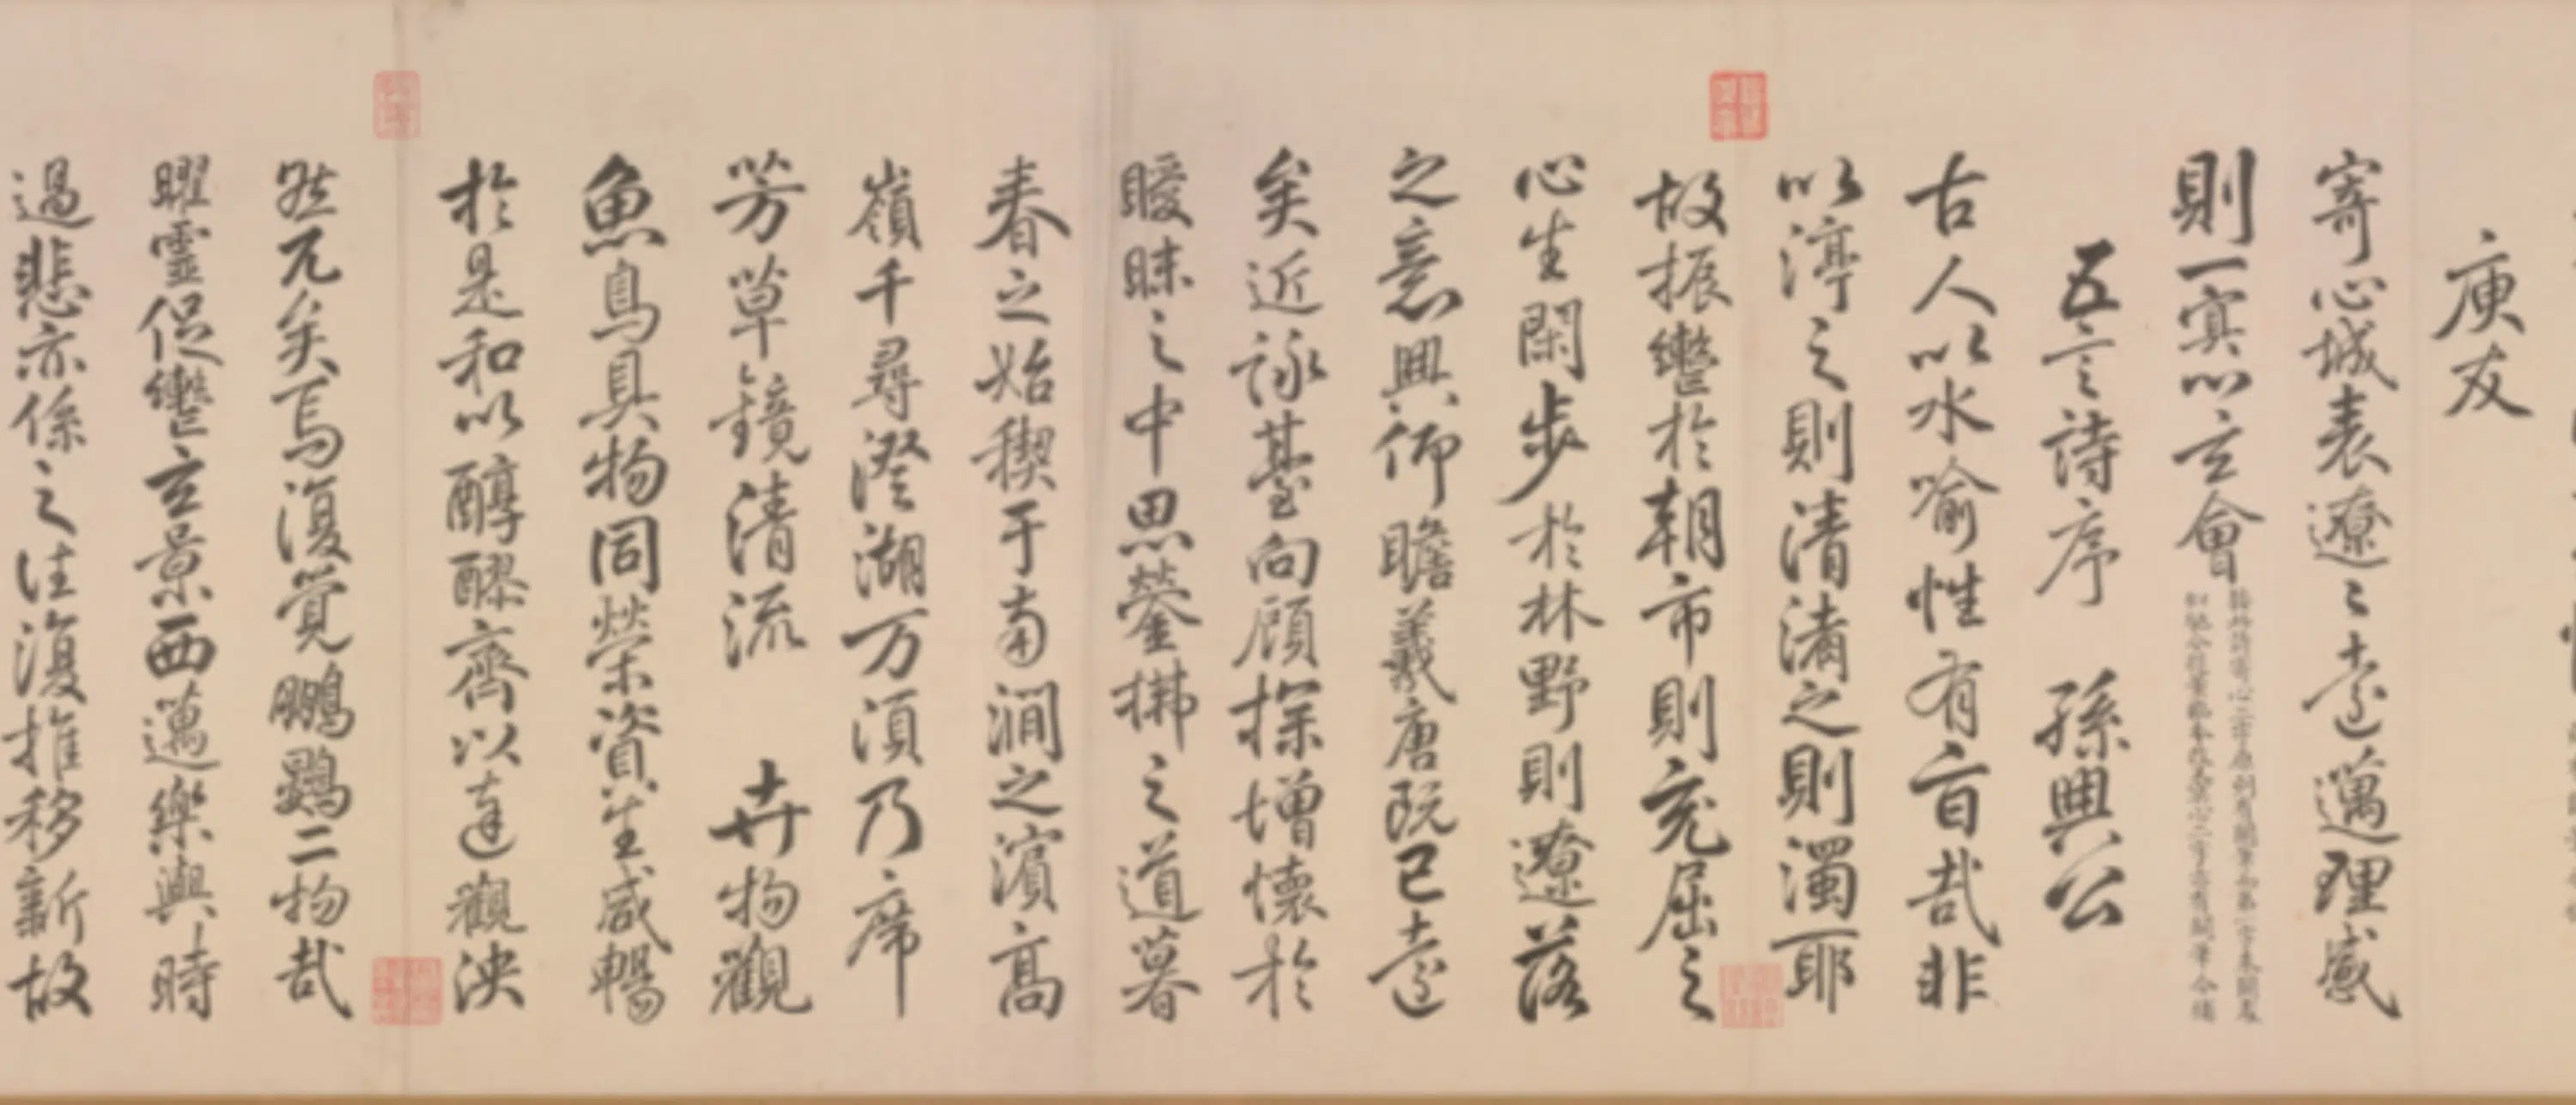 庾友
寄心城表遼々遠邁理感
則一寘以玄會
五言詩序 孫興公
古人以水喻性有旨哉非
以渟之則清淆之則濁耶
故振轡於朝市則充屈之
心生閑步於林野則遼落
之意興仰瞻羲唐既已遠
矣近詠基向顧探增懷於
曖昧之中思縈拂之道暮
春之始禊于南澗之濱高
嶺千尋澄湖万頃乃席
芳草鏡清流 卉物觀
魚鳥具物同榮資生咸暢
於是和以醇醪齊以達觀泱
然兀矣焉復覺鵬鷃二物哉
曜靈促轡玄景西邁樂與時
過悲亦係之往復推移新故